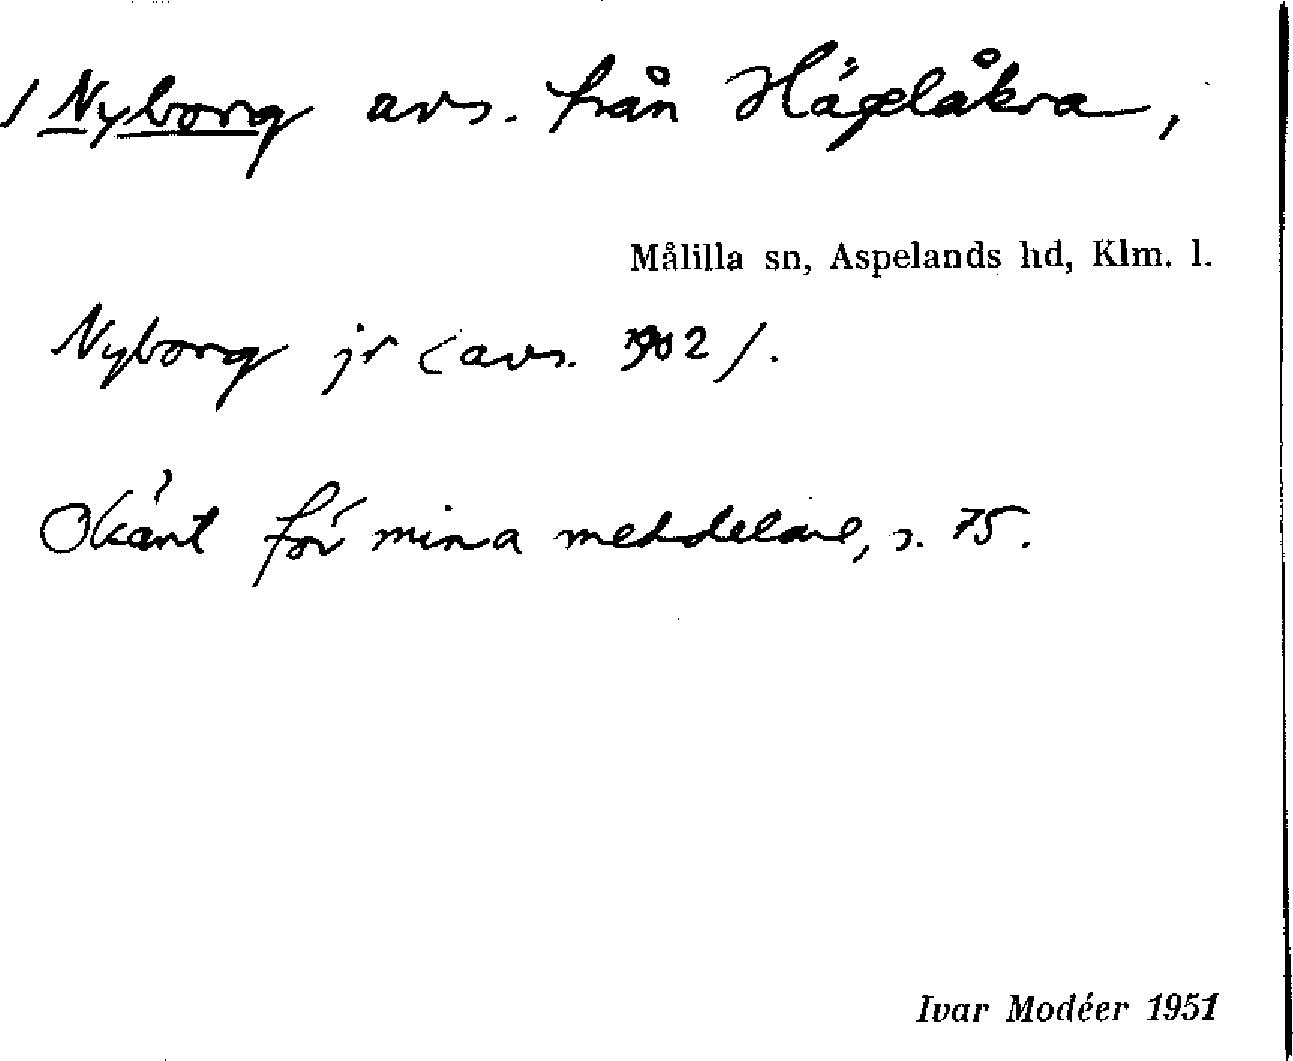 / Nyborg avs. från Hägelåkra,
Målilla sn, Aspelands hd, Klm. l.
Nyborg jr (avs. 1902/.
Okänt för mina meddelare, s. 75.
Ivar Modéer 1951